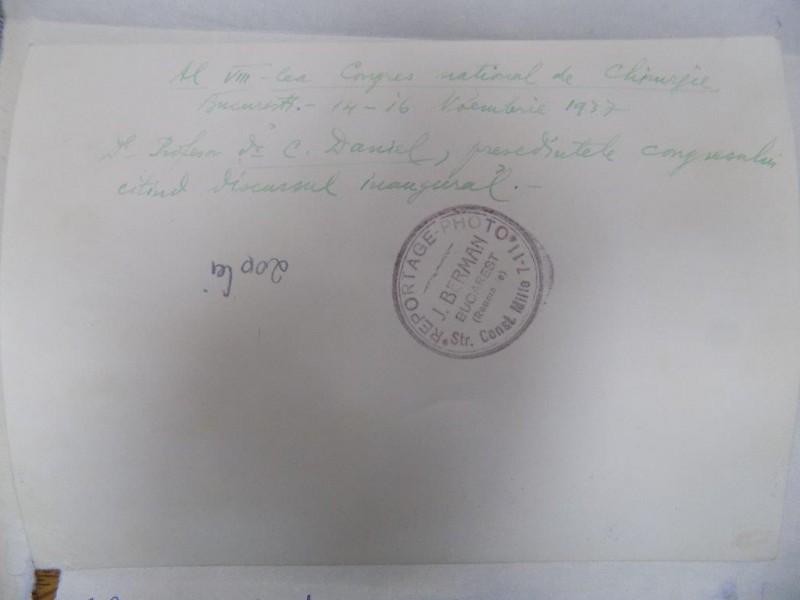 Al VIII-lea Congres național de Chirurgie
București.- 14-16 Noembrie 1937
Dl Profesor Dr C. Daniel, președintele congresului
citind discursul inaugural.-
200 lei
REPORTAGE-PHOTO
J. BERMAN
BUCAREST
Str. Const. Mille 7-11